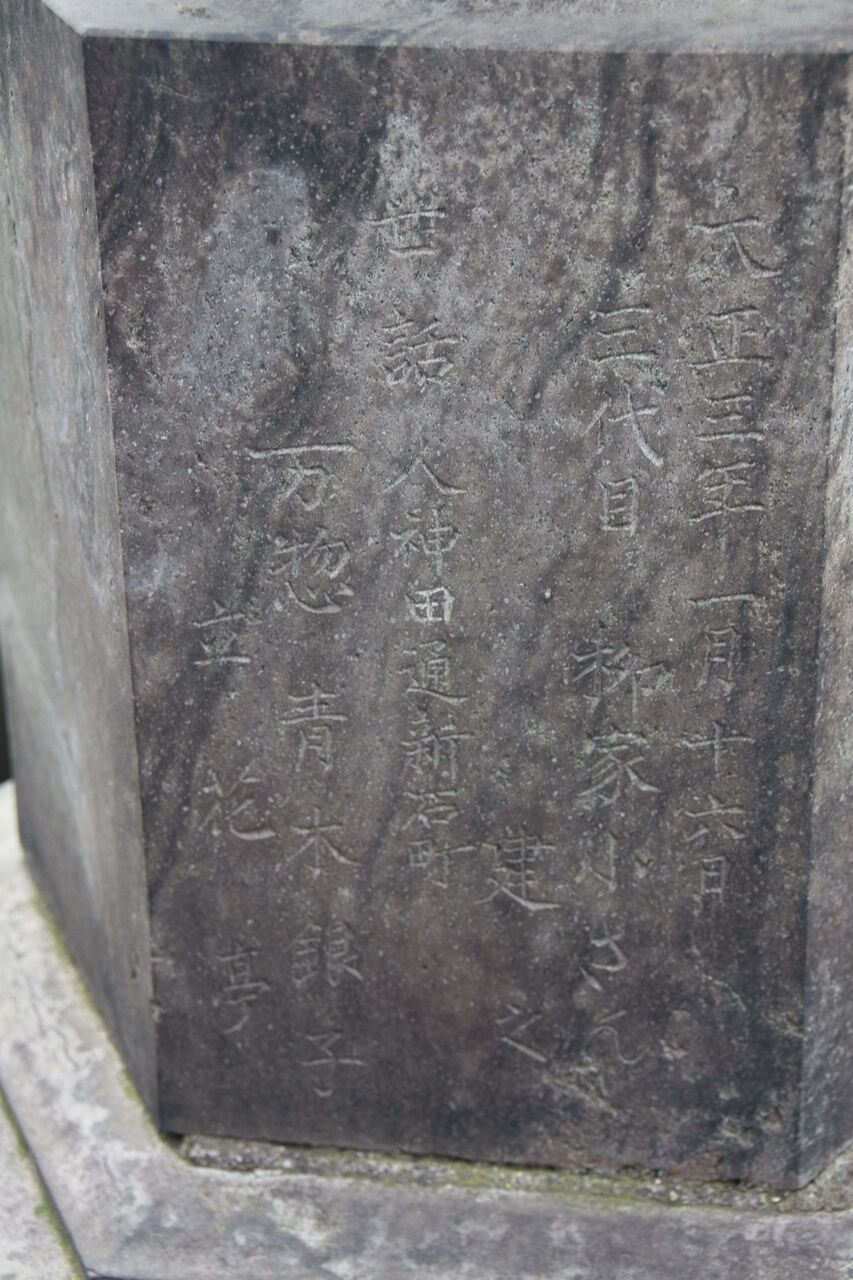 大正三年一月十六日
三代目 柳家小さん
建之
世話人神田通新石町
万惣 青木銀子
立花亭